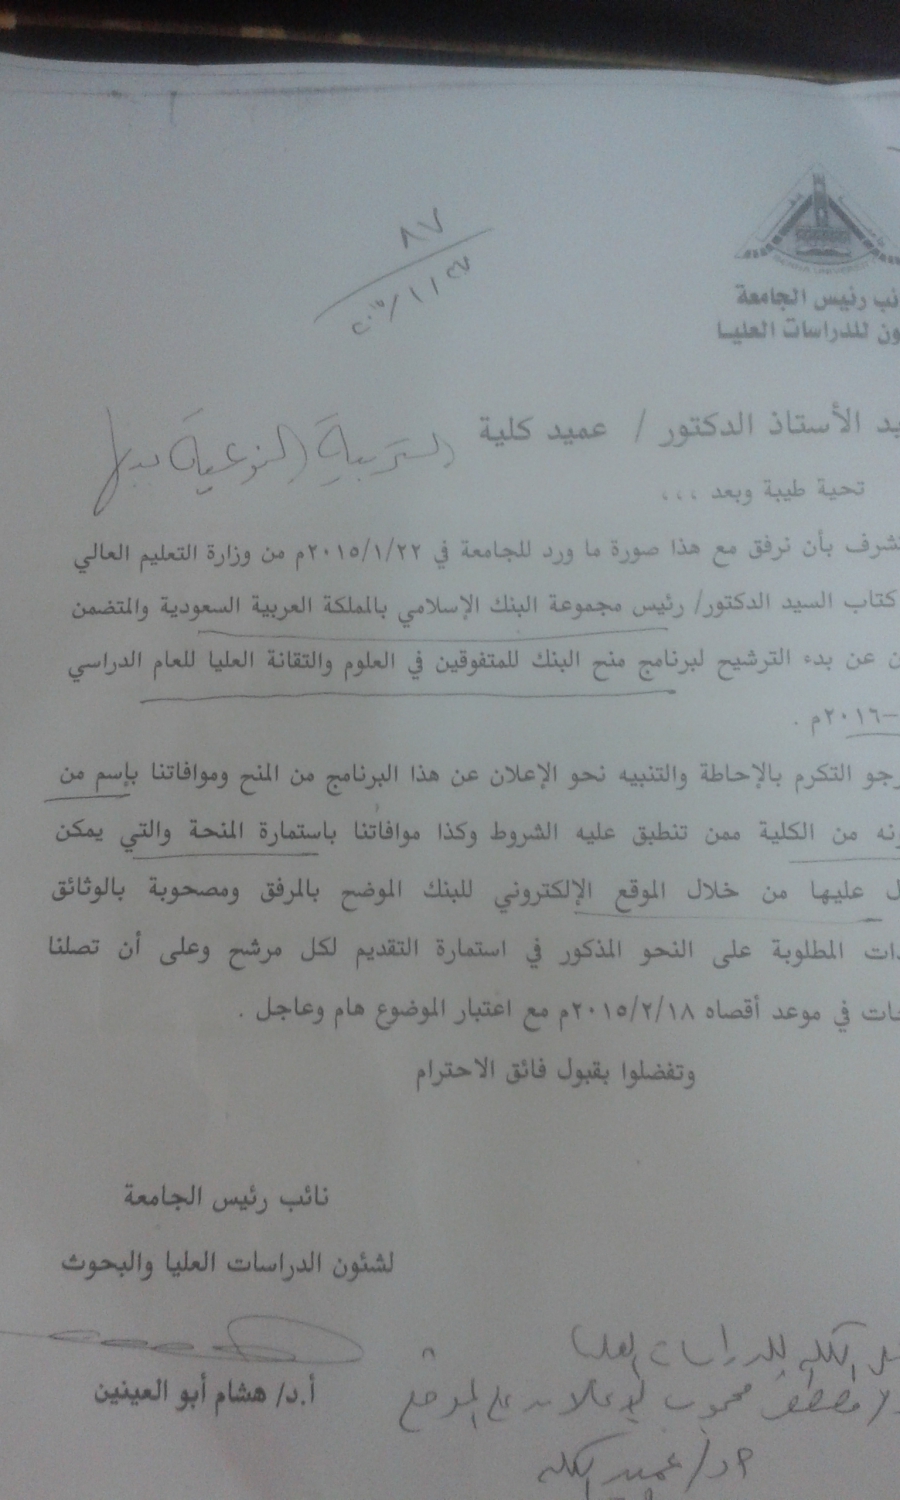 ٨٧
BENHA UNIVERSITY
نائب رئيس الجامعة
للدراسات العليا
الأستاذ الدكتور / عميد كلية التربية النوعية ببنها
تحية طيبة وبعد ،،،
بأن نرفق مع هذا صورة ما ورد للجامعة في ٢٠١٥/١/٢٢م من وزارة التعليم العالي
كتاب السيد الدكتور/ رئيس مجموعة البنك الإسلامي بالمملكة العربية السعودية والمتضمن
عن بدء الترشيح لبرنامج منح البنك للمتفوقين في العلوم والتقانة العليا للعام الدراسي
-٢٠١٦م .
التكرم بالإحاطة والتنبيه نحو الإعلان عن هذا البرنامج من المنح وموافاتنا بإسم من
من الكلية ممن تنطبق عليه الشروط وكذا موافاتنا باستمارة المنحة والتي يمكن
عليها من خلال الموقع الإلكتروني للبنك الموضح بالمرفق ومصحوبة بالوثائق
المطلوبة على النحو المذكور في استمارة التقديم لكل مرشح وعلى أن تصلنا
في موعد أقصاه ٢٠١٥/٢/١٨م مع اعتبار الموضوع هام وعاجل .
وتفضلوا بقبول فائق الاحترام
نائب رئيس الجامعة
لشئون الدراسات العليا والبحوث
أ.د/ هشام أبو العينين
الكلية للدراسات العليا
مصطفى محجوب للإعلان على الموقع
أ.د/ عميد الكلية